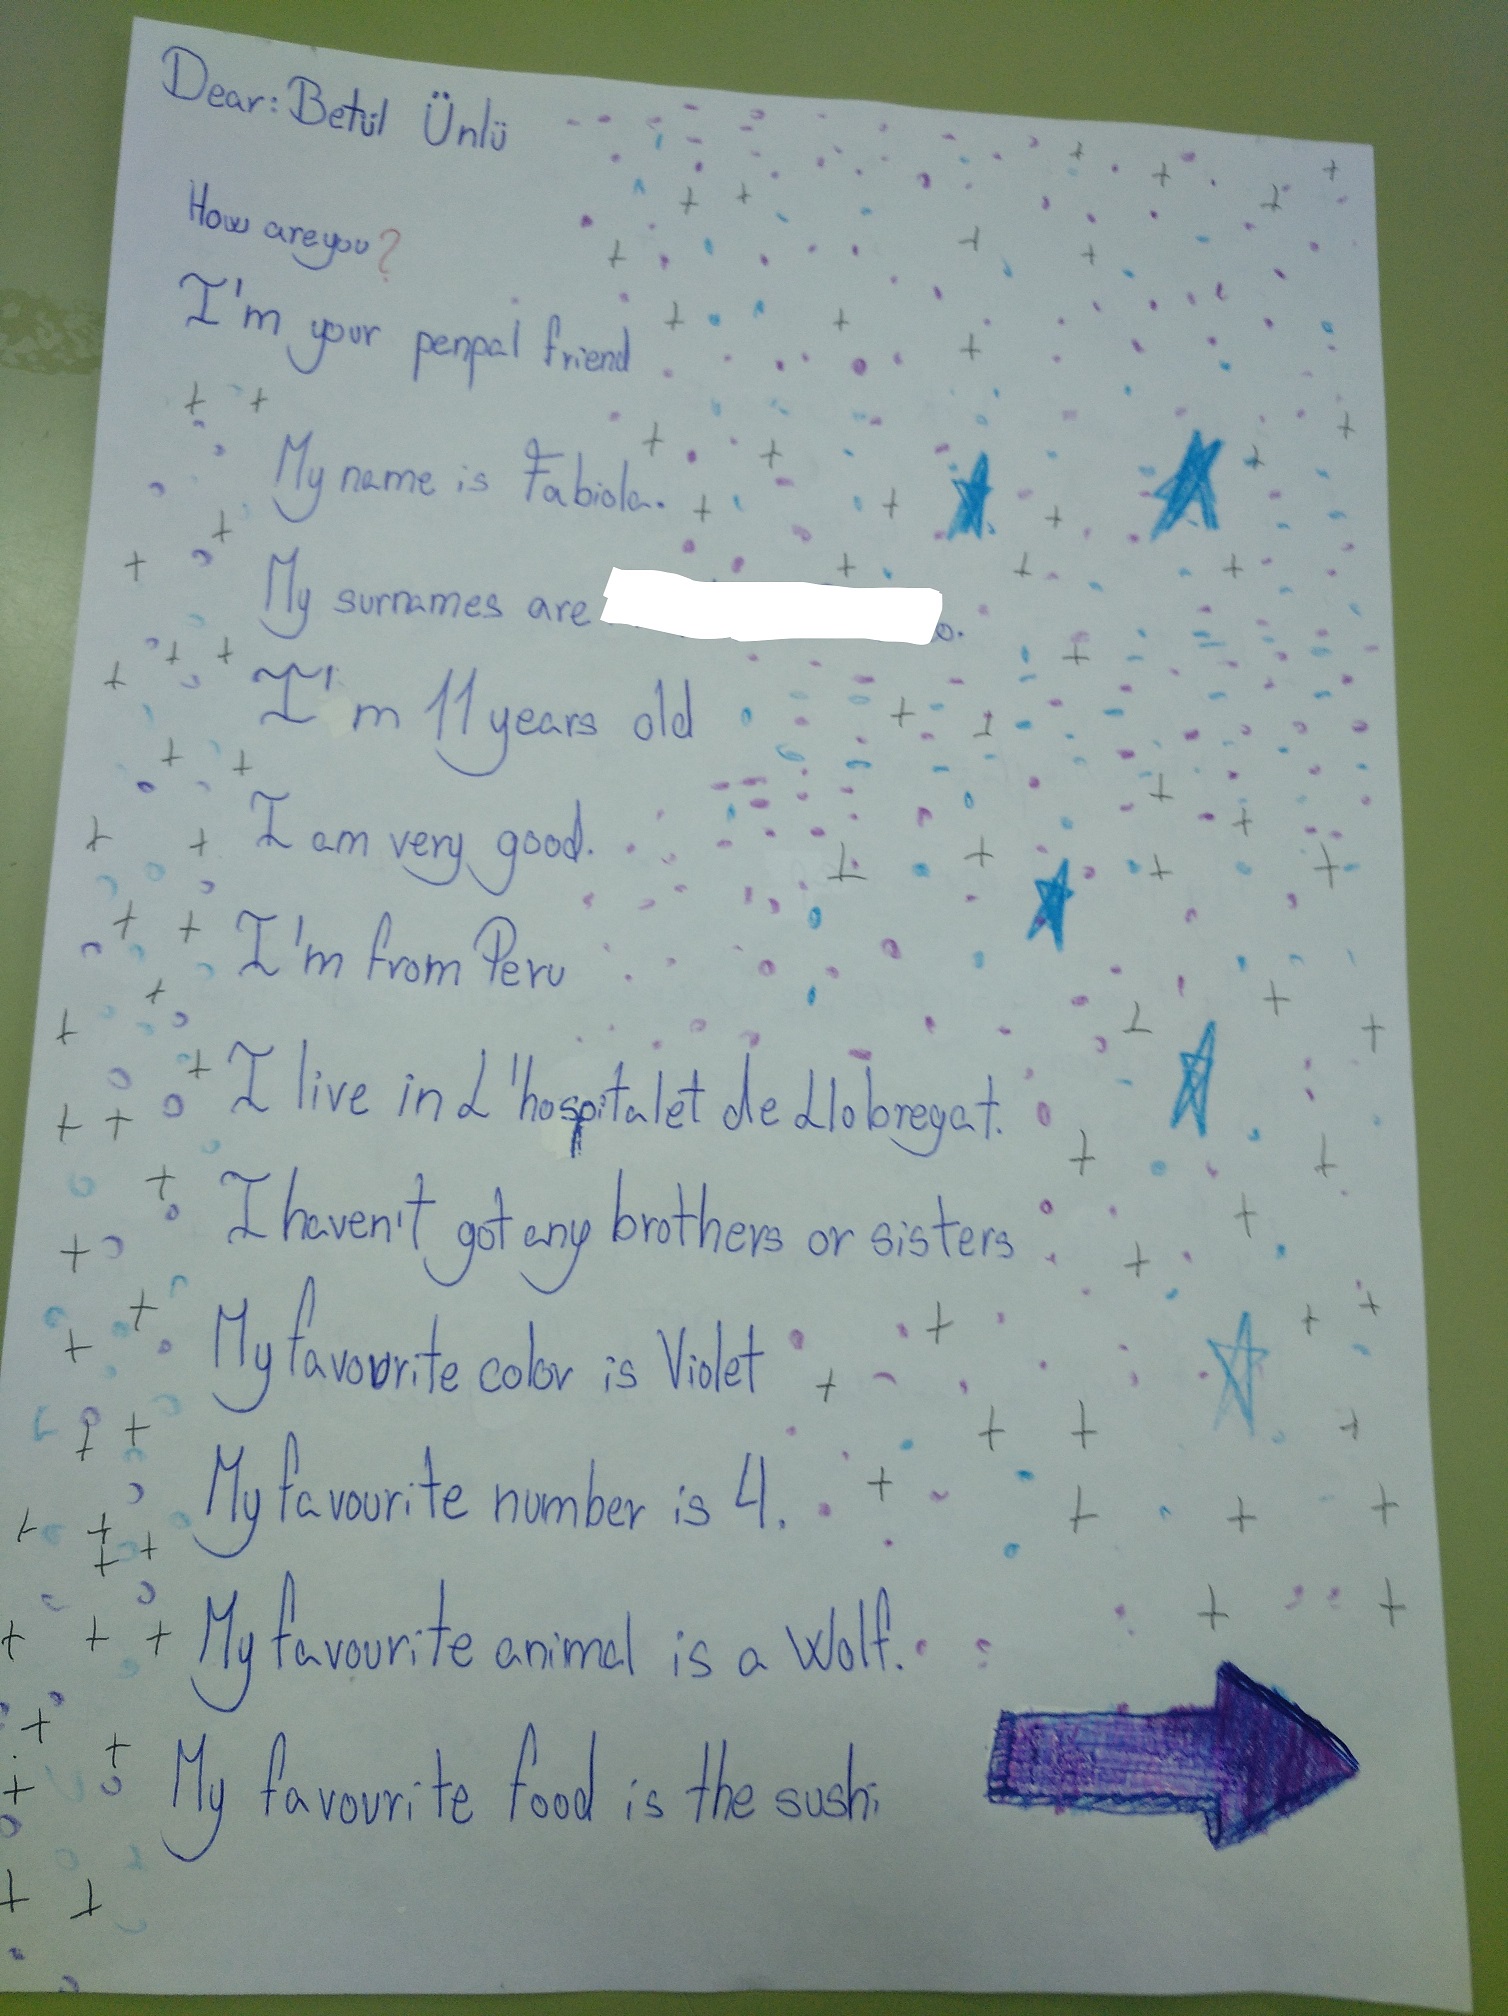 Dear: Betül Ünlü
How are you?
I'm your penpal friend
My name is Fabiola.
My surnames are
I'm 11 years old
I am very good.
I'm from Peru
I live in L'hospitalet de Llobregat.
I haven't got any brothers or sisters
My favourite color is Violet
My favourite number is 4.
My favourite animal is a Wolf.
My favourite food is the sushi